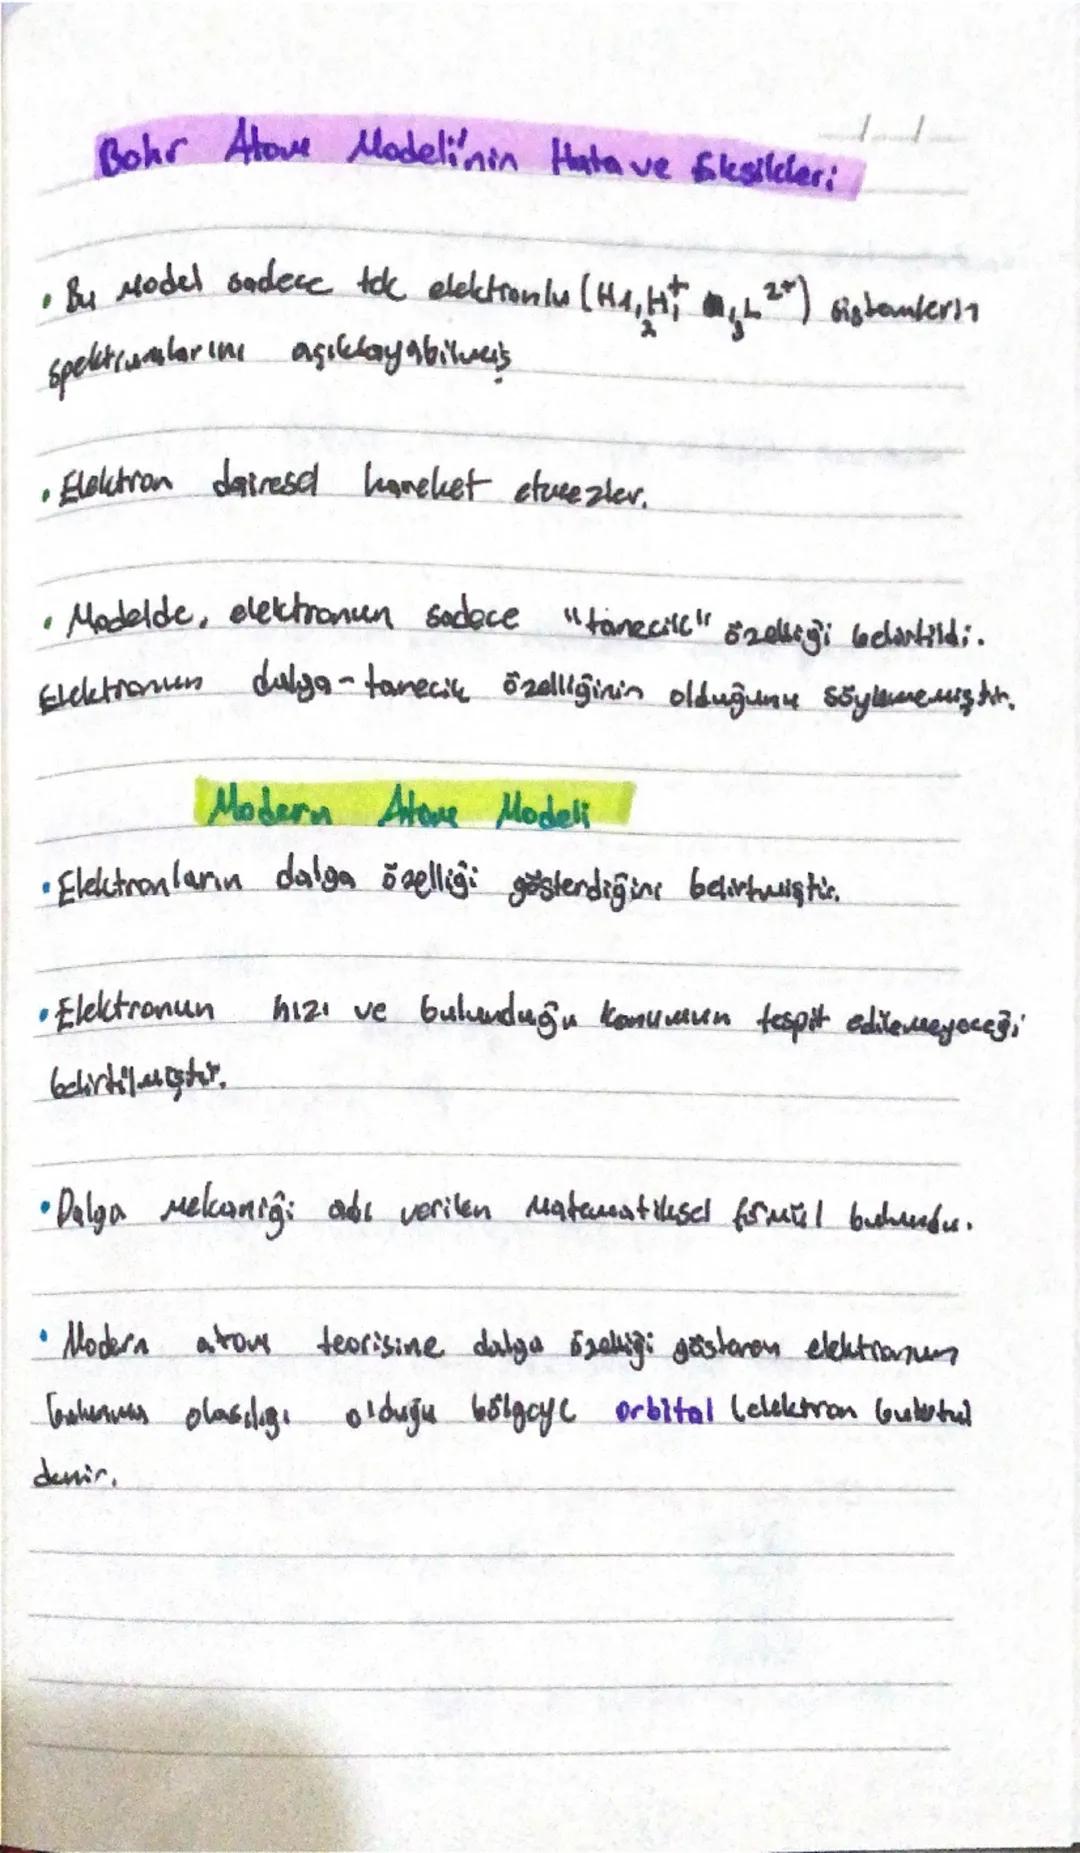 Bohr Atom Modeli'nin Hata ve Eksikleri:
• Bu Model sadece tek elektronlu (H1, H
spektrumlarını açıklayabilmiş
• Elektron dairesel hareket etmezler.
• Modelde, elektronun sadece "tanecik" özelliği belirtildi.
Elektronun dalga-tanecik özelliğinin olduğunu söylememiştir.
Modern Atom Modeli
• Elektronların dalga özelliği gösterdiğini belirtmiştir.
• Elektronun hızı ve bulunduğu konumun tespit edilemeyeceği
belirtilmiştir.
• Dalga Mekaniği adı verilen Matematiksel formül bulundu.
• Modern atom teorisine dalga özelliği gösteren elektronun
bulunma olasılığı olduğu bölgeye orbital (elektron bulutu)
denir.